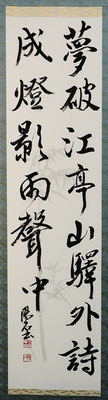 夢破江亭山驛外詩
成燈影雨聲中